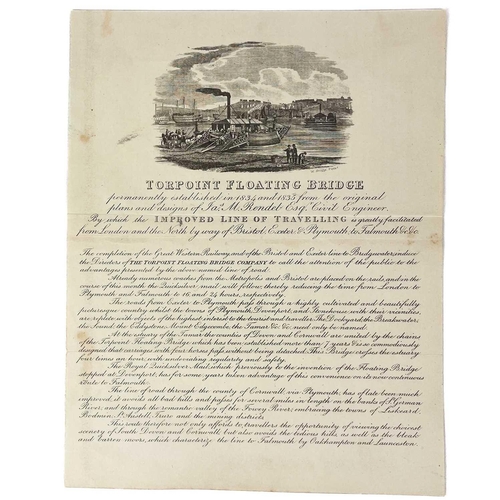 TORPOINT FLOATING BRIDGE
permanently established in 1834 and 1835 from the original
plans and designs of Jas. M. Rendel Esq. Civil Engineer.
By which the IMPROVED LINE OF TRAVELLING is greatly facilitated
from London and the North by way of Bristol, Exeter & Plymouth to Falmouth &c &c.
The completion of the Great Western Railway, and of the Bristol and Exeter line to Bridgewater, induce
the Directors of THE TORPOINT FLOATING BRIDGE COMPANY to call the attention of the public to the
advantages presented by the above named line of road.
Already numerous coaches from the Metropolis and Bristol are placed on the rails, and on the
course of this month the Quicksilver mail will follow, thereby reducing the time from London to
Plymouth and Falmouth to 16, and 24 hours, respectively.
The roads from Exeter to Plymouth pass through a highly cultivated and beautifully
picturesque country whilst the towns of Plymouth, Devonport, and Stonehouse, with their vicinities,
are replete with objects of the highest interest to the tourist and traveller. The Dockyard, the Breakwater,
the Sound, the Eddystone, Mount Edgcumbe, the Tamar &c. &c. need only be named.
At the estuary of the Tamar the counties of Devon and Cornwall are united by the chains
of the Torpoint Floating Bridge which has been established more than 7 years & is so commodiously
designed that carriages with four horses pass without being detached. This Bridge crosses the estuary
four times an hour, with undeviating regularity and safety.
The Royal Quicksilver Mail, which previously to the invention of the Floating Bridge
stopped at Devonport, has for some years taken advantage of this convenience on its now continuous
route to Falmouth.
The line of road through the county of Cornwall, via Plymouth, has of late been much
improved, it avoids all bad hills and passes for several miles in length on the banks of St. German
River, and through the romantic valley of the Fowey River, embracing the towns of Liskeard,
Bodmin, St. Austell, Truro and the mining districts.
This route therefore not only affords to travellers the opportunity of viewing the choicest
scenery of South Devon and Cornwall, but also avoids the tedious hills, as well as the bleak
and barren moors, which characterize the line to Falmouth by Oakhampton and Launceston.